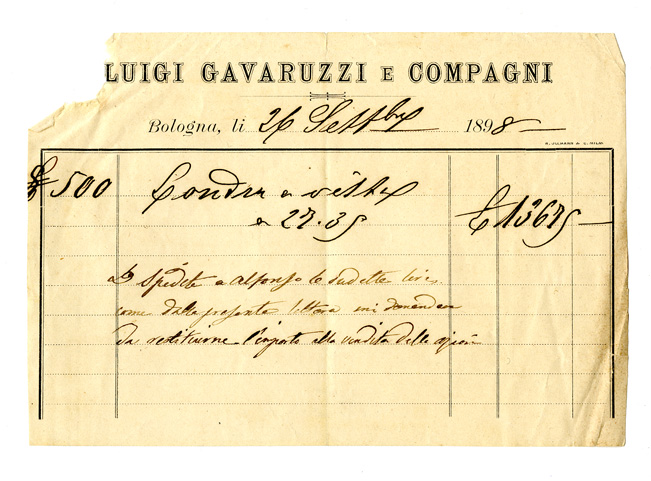 LUIGI GAVARUZZI E COMPAGNI
Bologna, li 26 Settbre 1898
£ 500 Londra a vista £ 13675
a 27.35
Spedite a Alfonso le sudette lire
come dalla presente lettera mi domanda
da restituirne l'importo alla vendita delle azioni